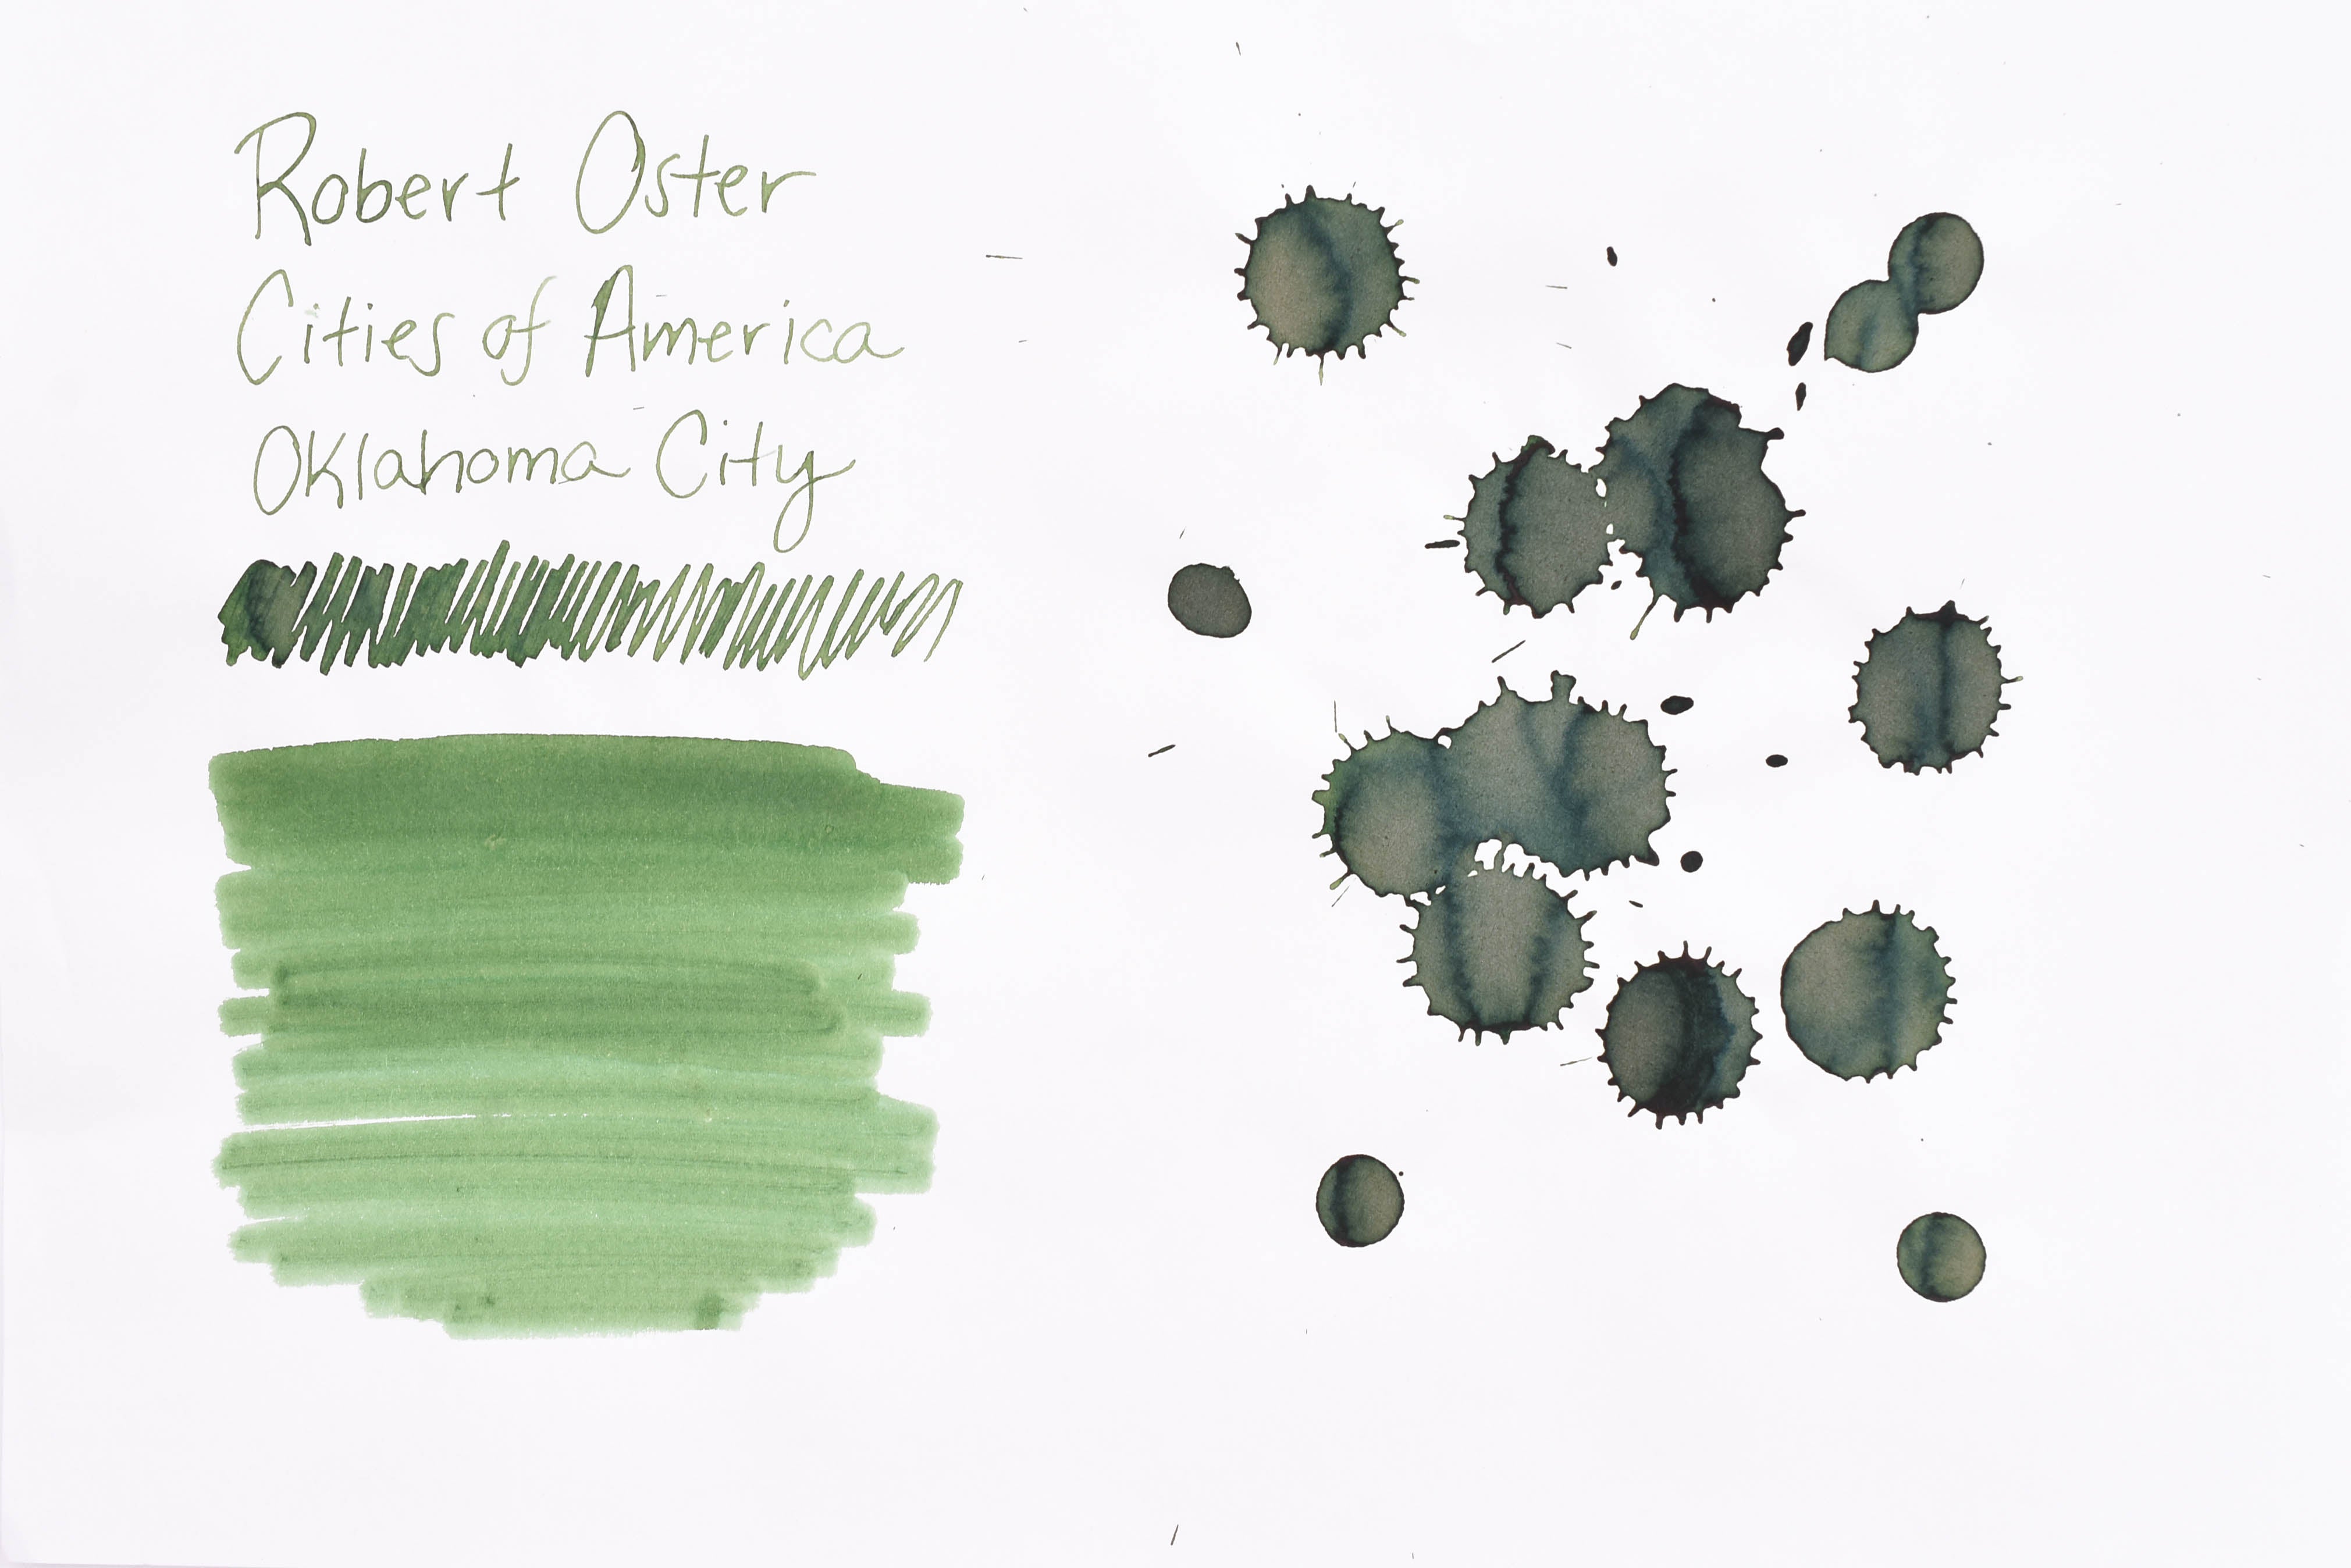 Robert Oster
Cities of America
Oklahoma City